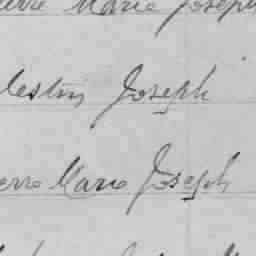 Marie Joseph
lestin Joseph
erre Marie Joseph